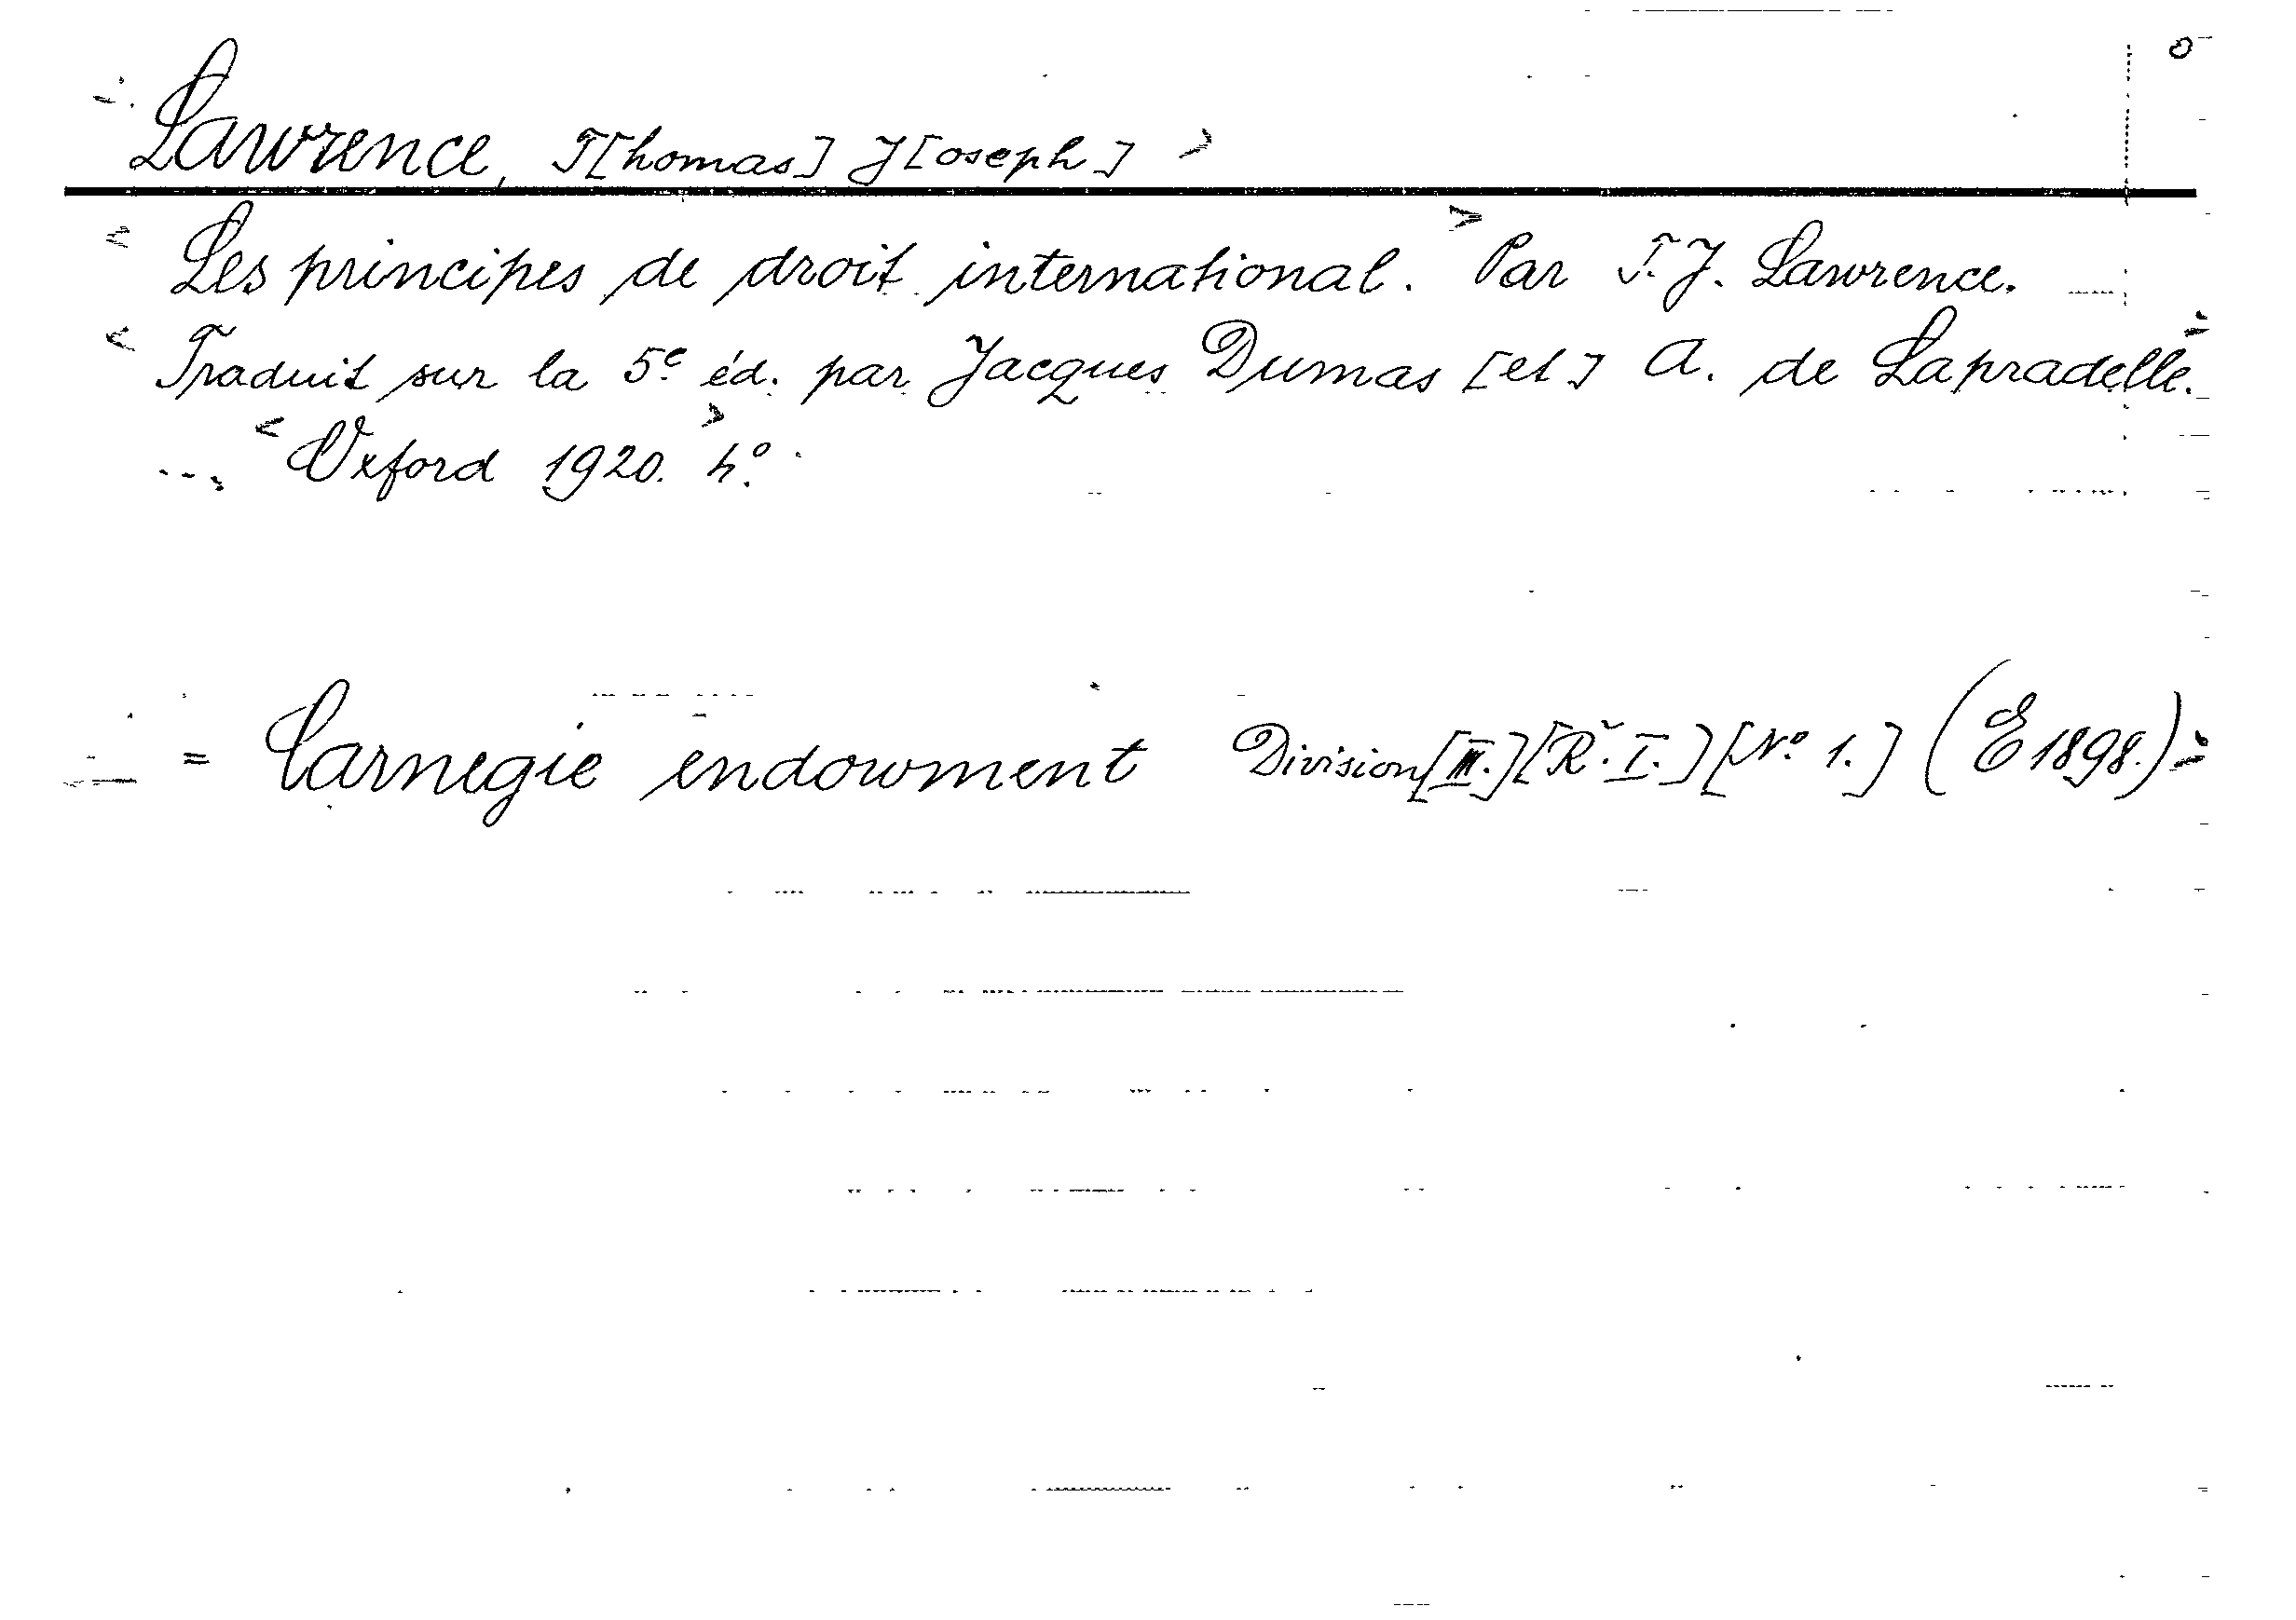 Lawrence, T[homas] J[oseph]
Les principes de droit international. Par T. J. Lawrence.
Traduit sur la 5e éd. par Jacques Dumas [et] A. de Lapradelle.
Oxford 1920. 4°.
= Carnegie endowment Division [III.] [R. I.] [No 1.] (E 1898.) =